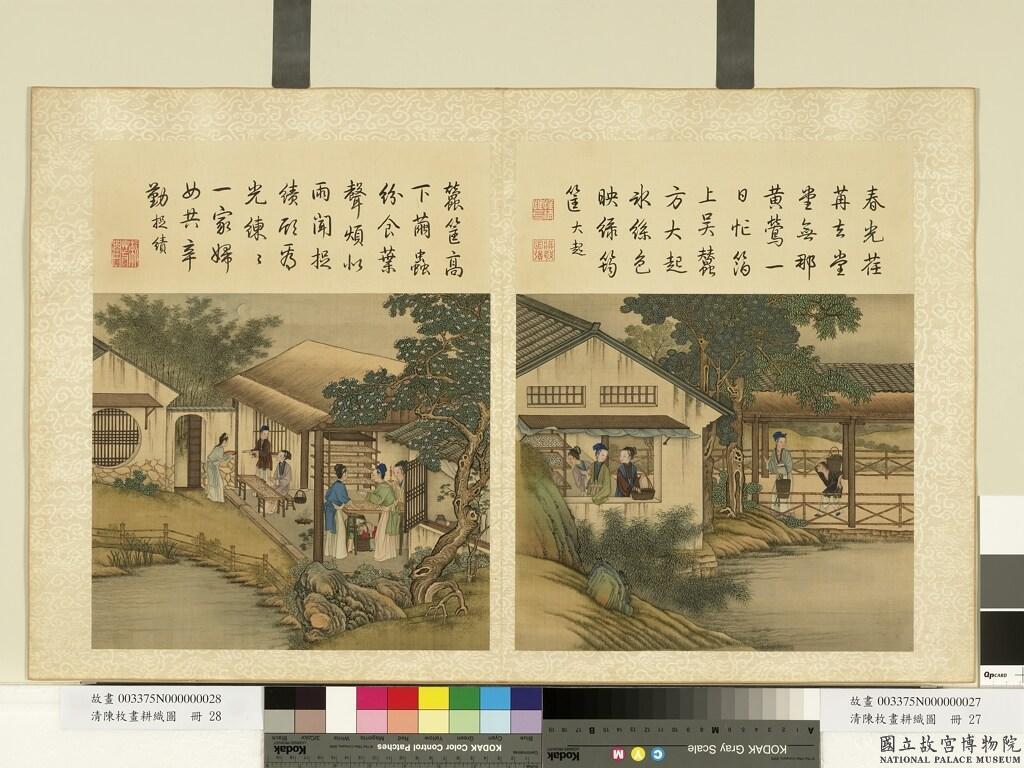 春光荏
苒去堂
堂無那
黄鶯一
日忙箔
上吴蠶
方大起
冰絲色
映綠筠
筐大起
蠶筐高
下薾蟲
紛食葉
聲煩似
雨聞捉
績頋為
光練〻
一家婦
女共辛
勤捉績
故畫 003375N000000028
清陳枚畫耕織圖 冊 28
故畫 003375N000000027
清陳枚畫耕織圖 冊 27
KODAK Color Control Patches
Kodak
Blue
Cyan
Green
Yellow
Red
Magenta
White
3/Color
Black
KODAK Gray Scale
Kodak
C
Y
M
A
M
B
QPCARD
國立故宮博物院
NATIONAL PALACE MUSEUM